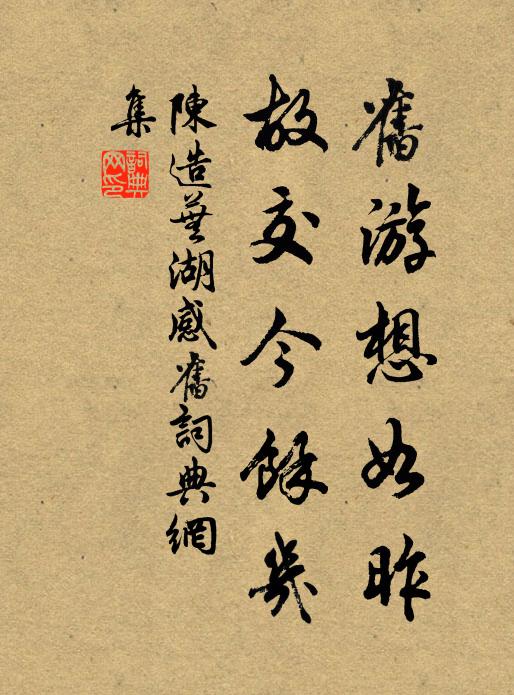 舊游想如昨
故交今餘幾
陳造蕪湖感舊詞典網
集
詞典網印